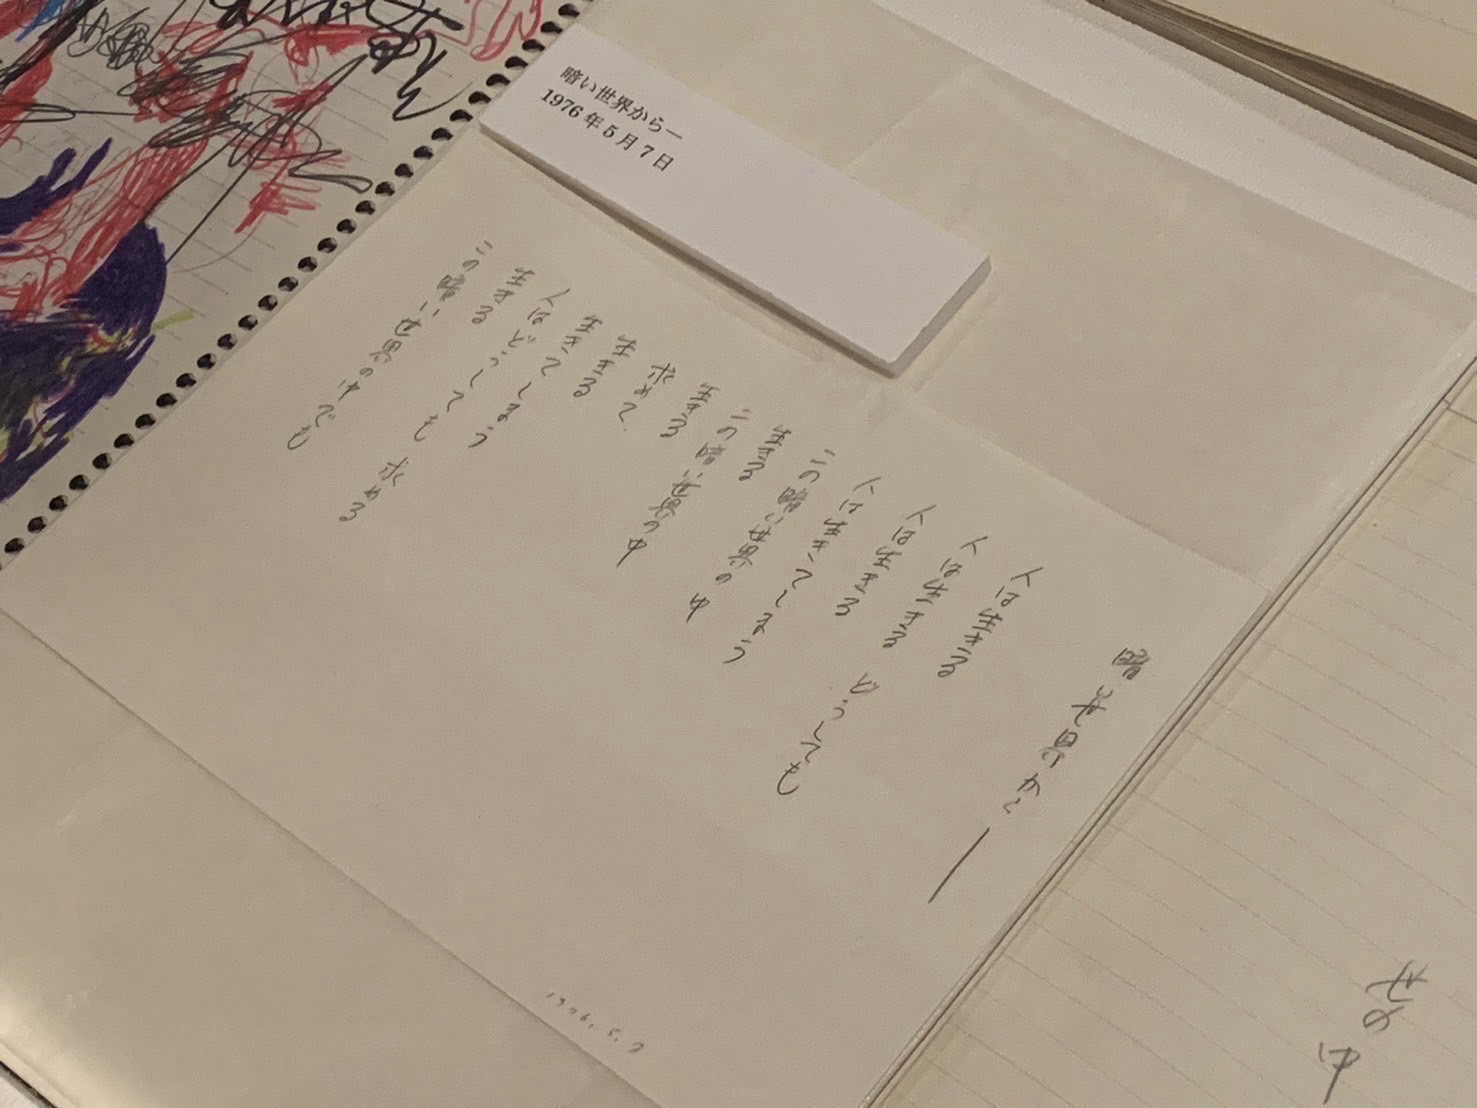 暗い世界から―
1976年5月7日
暗い世界から―
人は生きる
人は生きる どうしても
人は生きる
人は生きてしまう
この暗い世界の中
生きる
この暗い世界の中
生きる
求めて
生きる
生きてしまう
人はどうしても 求める
生きる
この暗い世界の中でも
1976.5.7
せの中